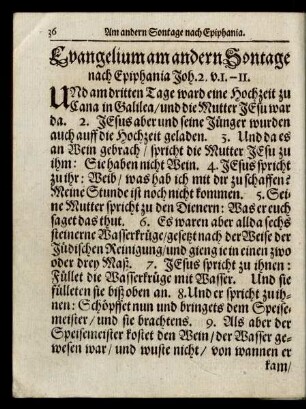 36 Am andern Sontage nach Epiphania.
Evangelium am andern Sontage
nach Epiphania Joh. 2. v. 1. - 11.
UNd am dritten Tage ward eine Hochzeit zu
Cana in Galilea/ und die Mutter JEsu war
da. 2. JEsus aber und seine Jünger wurden
auch auff die Hochzeit geladen. 3. Und da es
an Wein gebrach/ spricht die Mutter JEsu zu
ihm: Sie haben nicht Wein. 4. JEsus spricht
zu ihr: Weib/ was hab ich mit dir zu schaffen?
Meine Stunde ist noch nicht kommen. 5. Sei-
ne Mutter spricht zu den Dienern: Was er euch
saget das thut. 6. Es waren aber allda sechs
steinerne Wasserkrüge/ gesetzt nach der Weise der
Jüdischen Reinigung/ und gieng ie in einen zwo
oder drey Maß. 7. JEsus spricht zu ihnen:
Füllet die Wasserkrüge mit Wasser. Und sie
fülleten sie biß oben an. 8. Und er spricht zu ih-
nen: Schöpffet nun und bringets dem Speise-
meister/ und sie brachtens. 9. Als aber der
Speisemeister kostet den Wein/ der Wasser ge-
wesen war/ und wuste nicht/ von wannen er
kam/